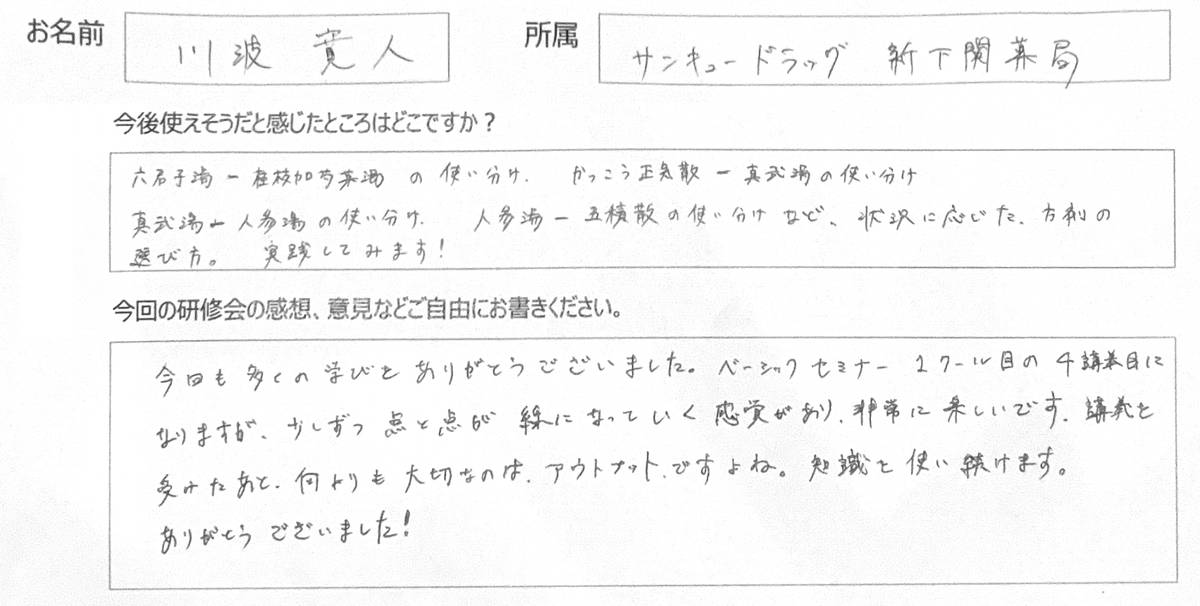 お名前 川波 寛人 所属 サンキュードラッグ 新下関薬局
今後使えそうだと感じたところはどこですか？
六君子湯ー桂枝加芍薬湯の使い分け. かっこう正気散ー真武湯の使い分け
真武湯ー人参湯の使い分け. 人参湯ー五積散の使い分けなど、状況に応じた、方剤の
選び方。 実践してみます!
今回の研修会の感想、意見などご自由にお書きください。
今回も多くの学びをありがとうございました。ベーシックセミナー 2クール目の4講義目に
なりますが、少しずつ点と点が線になっていく感覚があり、非常に楽しいです. 講義を
受けたあと、何よりも大切なのは、アウトプット、ですよね。知識を使い続けます。
ありがとうございました!